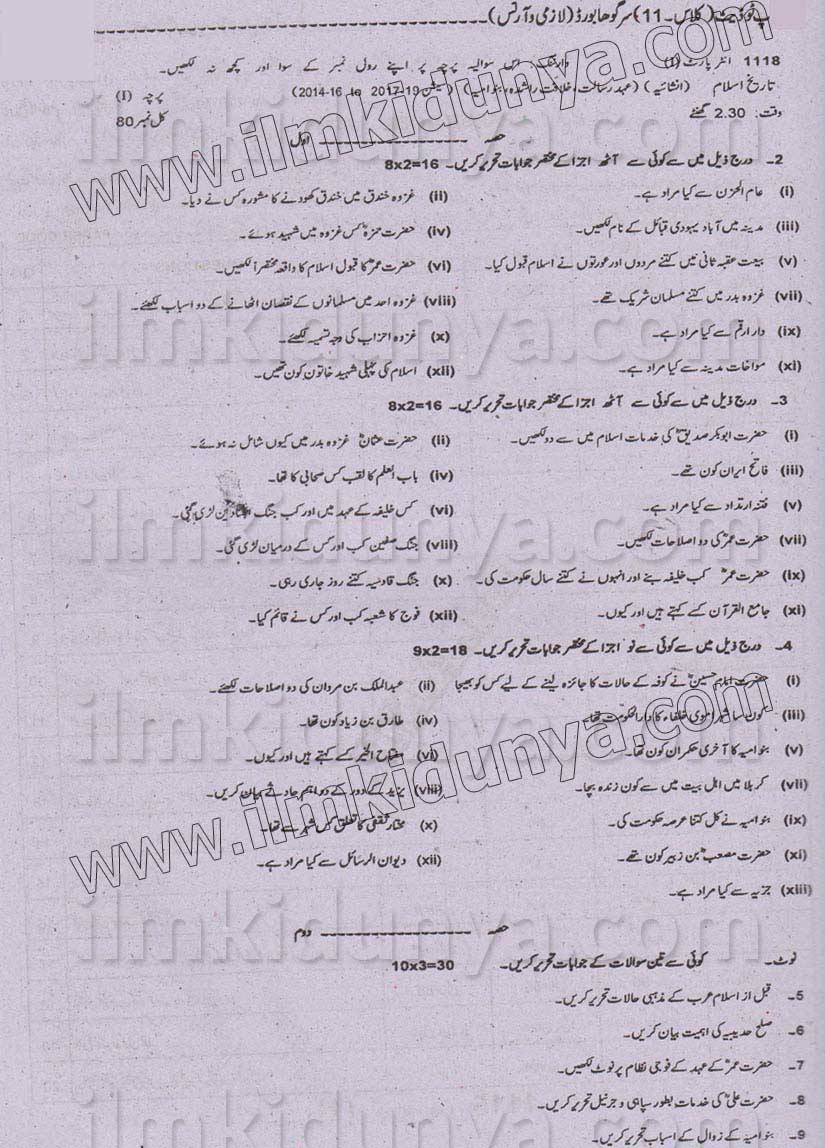 پ ٹو ڈیٹ (کلاس۔11) سرگودھا بورڈ (لازمی و آرٹس)
1118 انٹر پارٹ (I) وارننگ: اس سوالیہ پرچہ پر اپنے رول نمبر کے سوا اور کچھ نہ لکھیں۔
تاریخ اسلام (انشائیہ) (عہد رسالت، خلافت راشدہ، بنو امیہ) (سیشن 19-2017 to 16-2014) پرچہ (I)
وقت: 2.30 گھنٹے کل نمبر 80
حصہ اول
2۔ درج ذیل میں سے کوئی سے آٹھ اجزا کے مختصر جوابات تحریر کریں۔ 8x2=16
(i) عام الحزن سے کیا مراد ہے۔ (ii) غزوہ خندق میں خندق کھودنے کا مشورہ کس نے دیا۔
(iii) مدینہ میں آباد یہودی قبائل کے نام لکھیں۔ (iv) حضرت حمزہؓ کس غزوہ میں شہید ہوئے۔
(v) بیعت عقبہ ثانی میں کتنے مردوں اور عورتوں نے اسلام قبول کیا۔ (vi) حضرت عمرؓ کا قبول اسلام کا واقعہ مختصراً لکھیں۔
(vii) غزوہ بدر میں کتنے مسلمان شریک تھے۔ (viii) غزوہ احد میں مسلمانوں کے نقصان اٹھانے کے دو اسباب لکھئے۔
(ix) دار ارقم سے کیا مراد ہے۔ (x) غزوہ احزاب کی وجہ تسمیہ لکھئے۔
(xi) مواخات مدینہ سے کیا مراد ہے۔ (xii) اسلام کی پہلی شہید خاتون کون تھیں۔
3۔ درج ذیل میں سے کوئی سے آٹھ اجزا کے مختصر جوابات تحریر کریں۔ 8x2=16
(i) حضرت ابوبکر صدیقؓ کی خدمات اسلام میں سے دو لکھیں۔ (ii) حضرت عثمانؓ غزوہ بدر میں کیوں شامل نہ ہوئے۔
(iii) فاتح ایران کون تھے۔ (iv) باب العلم کا لقب کس صحابی کا تھا۔
(v) فتنہ ارتداد سے کیا مراد ہے۔ (vi) کس خلیفہ کے عہد میں اور کب جنگ لڑی گئی۔
(vii) حضرت عمرؓ کی دو اصلاحات لکھیں۔ (viii) جنگ صفین کب اور کس کے درمیان لڑی گئی۔
(ix) حضرت عمرؓ کب خلیفہ بنے اور انہوں نے کتنے سال حکومت کی۔ (x) جنگ قادسیہ کتنے روز جاری رہی۔
(xi) جامع القرآن کسے کہتے ہیں اور کیوں۔ (xii) فوج کا شعبہ کب اور کس نے قائم کیا۔
4۔ درج ذیل میں سے کوئی سے نو اجزا کے مختصر جوابات تحریر کریں۔ 9x2=18
(i) حضرت امام حسینؓ نے کوفہ کے حالات کا جائزہ لینے کے لیے کس کو بھیجا (ii) عبدالملک بن مروان کی دو اصلاحات لکھئے۔
(iii) کون سا شہر اموی خلفاء کا دارالحکومت تھا۔ (iv) طارق بن زیاد کون تھا۔
(v) بنو امیہ کا آخری حکمران کون تھا۔ (vi) مفتاح الخیر کسے کہتے ہیں اور کیوں۔
(vii) کربلا میں اہل بیت میں سے کون زندہ بچا۔ (viii) یزید کے دور کے دو اہم حادثے بیان کریں۔
(ix) بنو امیہ نے کل کتنا عرصہ حکومت کی۔ (x) مختار ثقفی کا تعلق کس شہر سے تھا۔
(xi) حضرت مصعبؓ بن زبیر کون تھے۔ (xii) دیوان الرسائل سے کیا مراد ہے۔
(xiii) جزیہ سے کیا مراد ہے۔
حصہ دوم
نوٹ۔ کوئی سے تین سوالات کے جوابات تحریر کریں۔ 10x3=30
5۔ قبل از اسلام عرب کے مذہبی حالات تحریر کریں۔
6۔ صلح حدیبیہ کی اہمیت بیان کریں۔
7۔ حضرت عمرؓ کے عہد کے فوجی نظام پر نوٹ لکھیں۔
8۔ حضرت علیؓ کی خدمات بطور سپاہی و جرنیل تحریر کریں۔
9۔ بنو امیہ کے زوال کے اسباب تحریر کریں۔
www.ilmkidunya.com
ilmkidunya.com
ilmkidunya.com
ilmkidunya.com
ilmkidunya.com
www.ilmkidunya.com
ilmkidunya.com
ilmkidunya.com